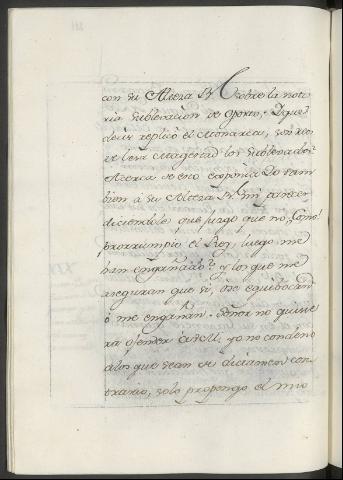 con su Alteza Rl. sobre la noto
ria sublevacion de Oporto, Que
decis replicó el Monarca, son ó no
de lesa Magestad los sublevados?
Acerca de eso exponia Yo tam
bien á su Alteza Rl. mi parecer
diciendole, que juzgo que no; ¡como!
prorrumpio el Rey, luego me
han engañado? y los que me
aseguran que si, ó se equibocan
ó me engañan. Señor no quisie
ra ofender á V.M. yo no condeno
a los que sean de dictamen con
trario, solo propongo el mio